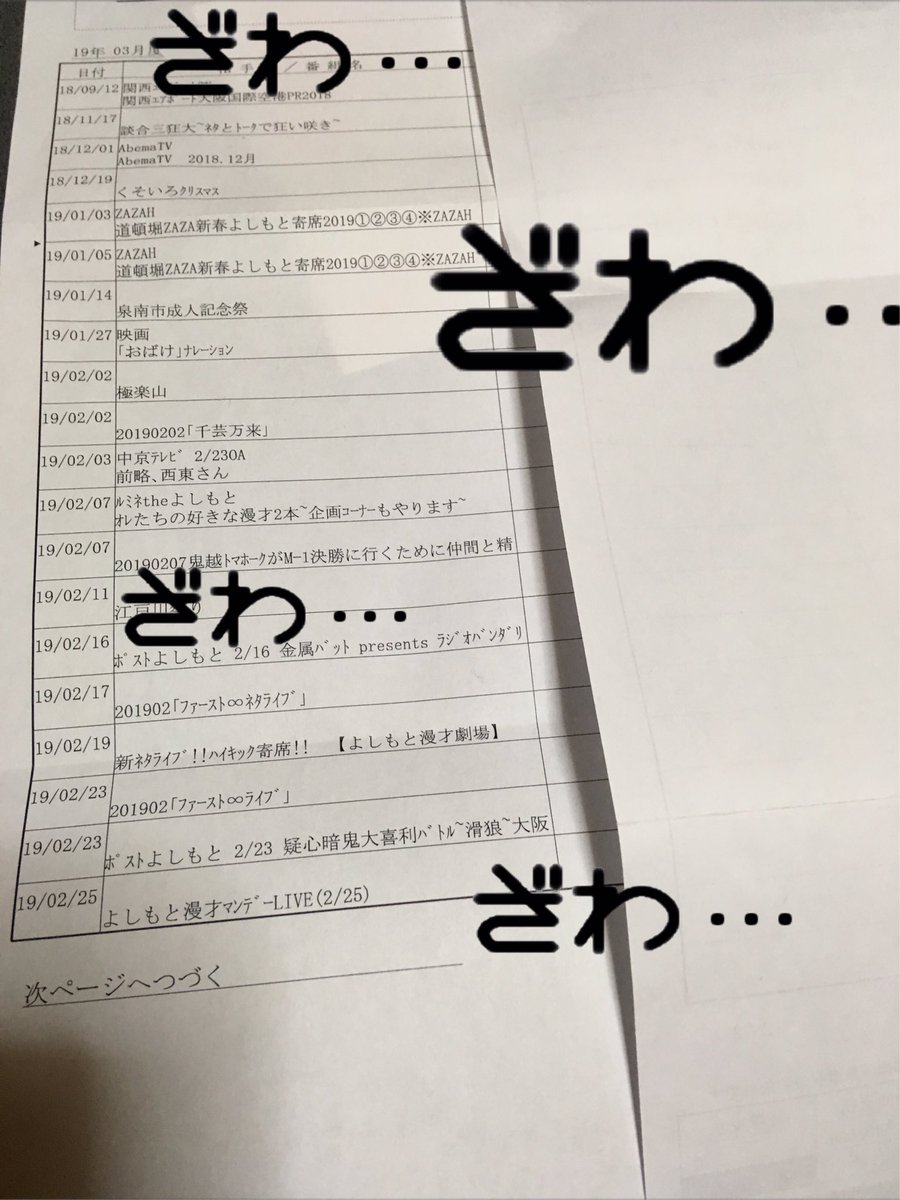 19年 03月度
ざわ・・・
日付 手 / 番組名
18/09/12 関西
関西ｴｱﾎﾟｰﾄ大阪国際空港PR2018
18/11/17
談合三狂大~ﾈﾀとﾄｰｸで狂い咲き~
18/12/01 AbemaTV
AbemaTV 2018.12月
18/12/19
くそいろｸﾘｽﾏｽ
19/01/03 ZAZAH
道頓堀ZAZA新春よしもと寄席2019①②③④※ZAZAH
19/01/05 ZAZAH
道頓堀ZAZA新春よしもと寄席2019①②③④※ZAZAH
ざわ・・
19/01/14
泉南市成人記念祭
19/01/27 映画
「おばけ」ﾅﾚｰｼｮﾝ
19/02/02
極楽山
19/02/02
20190202「千芸万来」
19/02/03 中京ﾃﾚﾋﾞ 2/23OA
前略、西東さん
19/02/07 ﾙﾐﾈtheよしもと
ｵﾚたちの好きな漫才2本~企画ｺｰﾅｰもやります~
19/02/07
20190207鬼越ﾄﾏﾎｰｸがM-1決勝に行くために仲間と精
19/02/11
江戸川
ざわ・・・
19/02/16
ﾎﾟｽﾄよしもと 2/16 金属ﾊﾞｯﾄ presents ﾗｼﾞｵﾊﾞﾝﾀﾞﾘ
19/02/17
201902「ﾌｧｰｽﾄ∞ﾈﾀﾗｲﾌﾞ」
19/02/19
新ﾈﾀﾗｲﾌﾞ!!ﾊｲｷｯｸ寄席!! 【よしもと漫才劇場】
19/02/23
201902「ﾌｧｰｽﾄ∞ﾗｲﾌﾞ」
19/02/23
ﾎﾟｽﾄよしもと 2/23 疑心暗鬼大喜利ﾊﾞﾄﾙ~滑狼~大阪
19/02/25
よしもと漫才ﾏﾝﾃﾞｰLIVE(2/25)
ざわ・・・
次ページへつづく